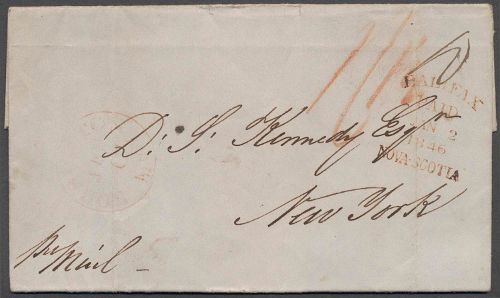 HALIFAX
PAID
JAN 2
1846
NOVA-SCOTIA
D. S. Kennedy Esqr
New York
per Mail